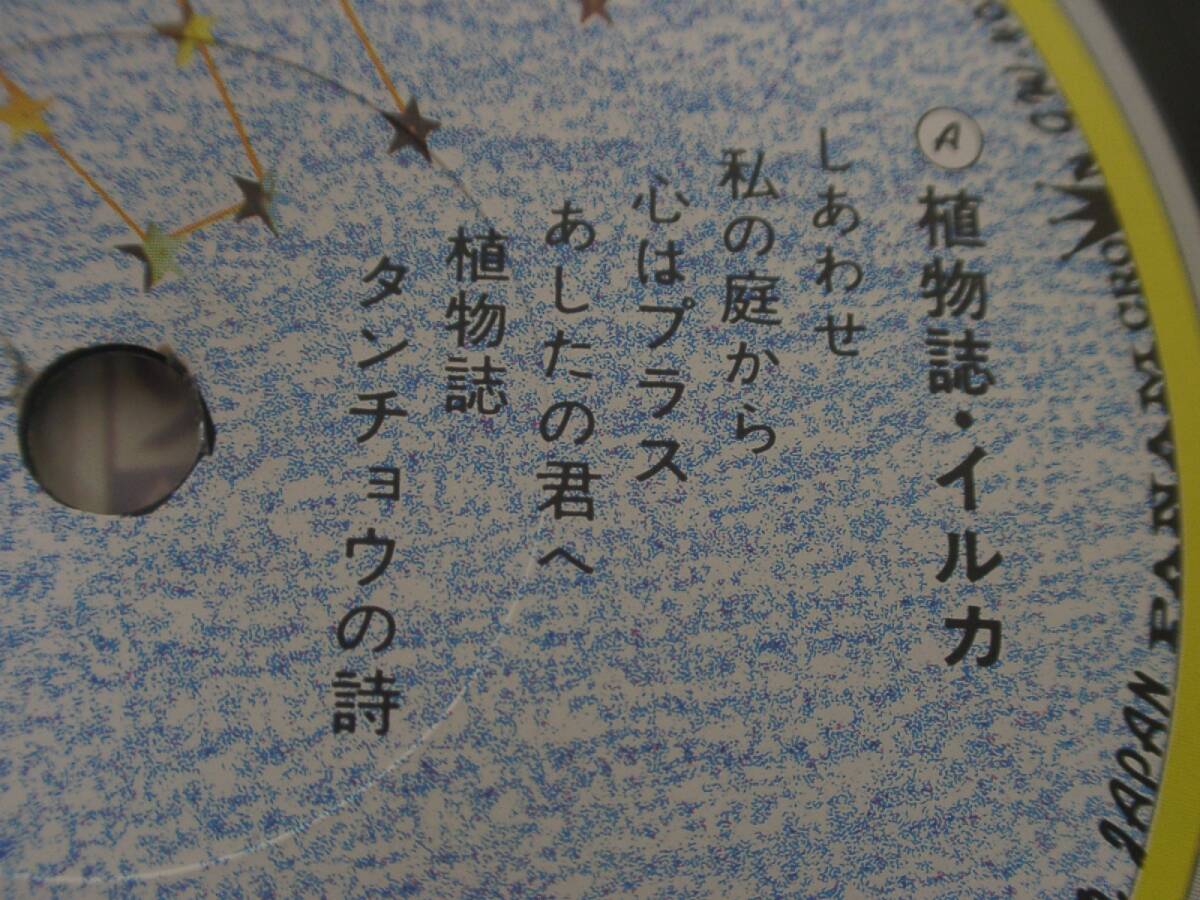 Ⓐ 植物誌・イルカ
しあわせ
私の庭から
心はプラス
あしたの君へ
植物誌
タンチョウの詩
PANAM CRO
JAPAN